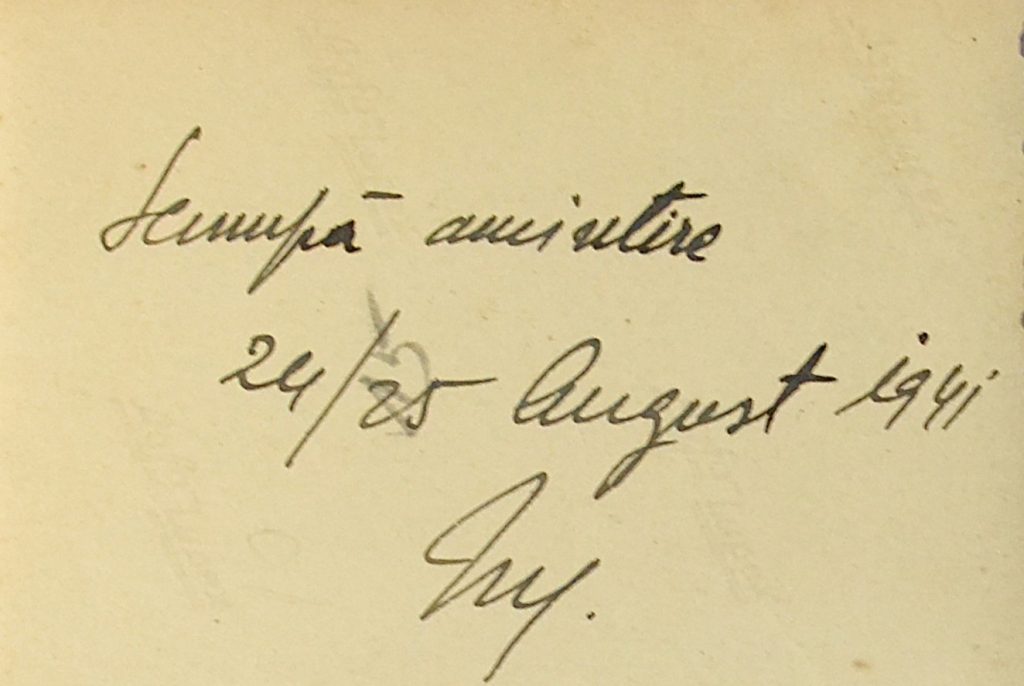 Scumpă amintire
24/25 August 1941